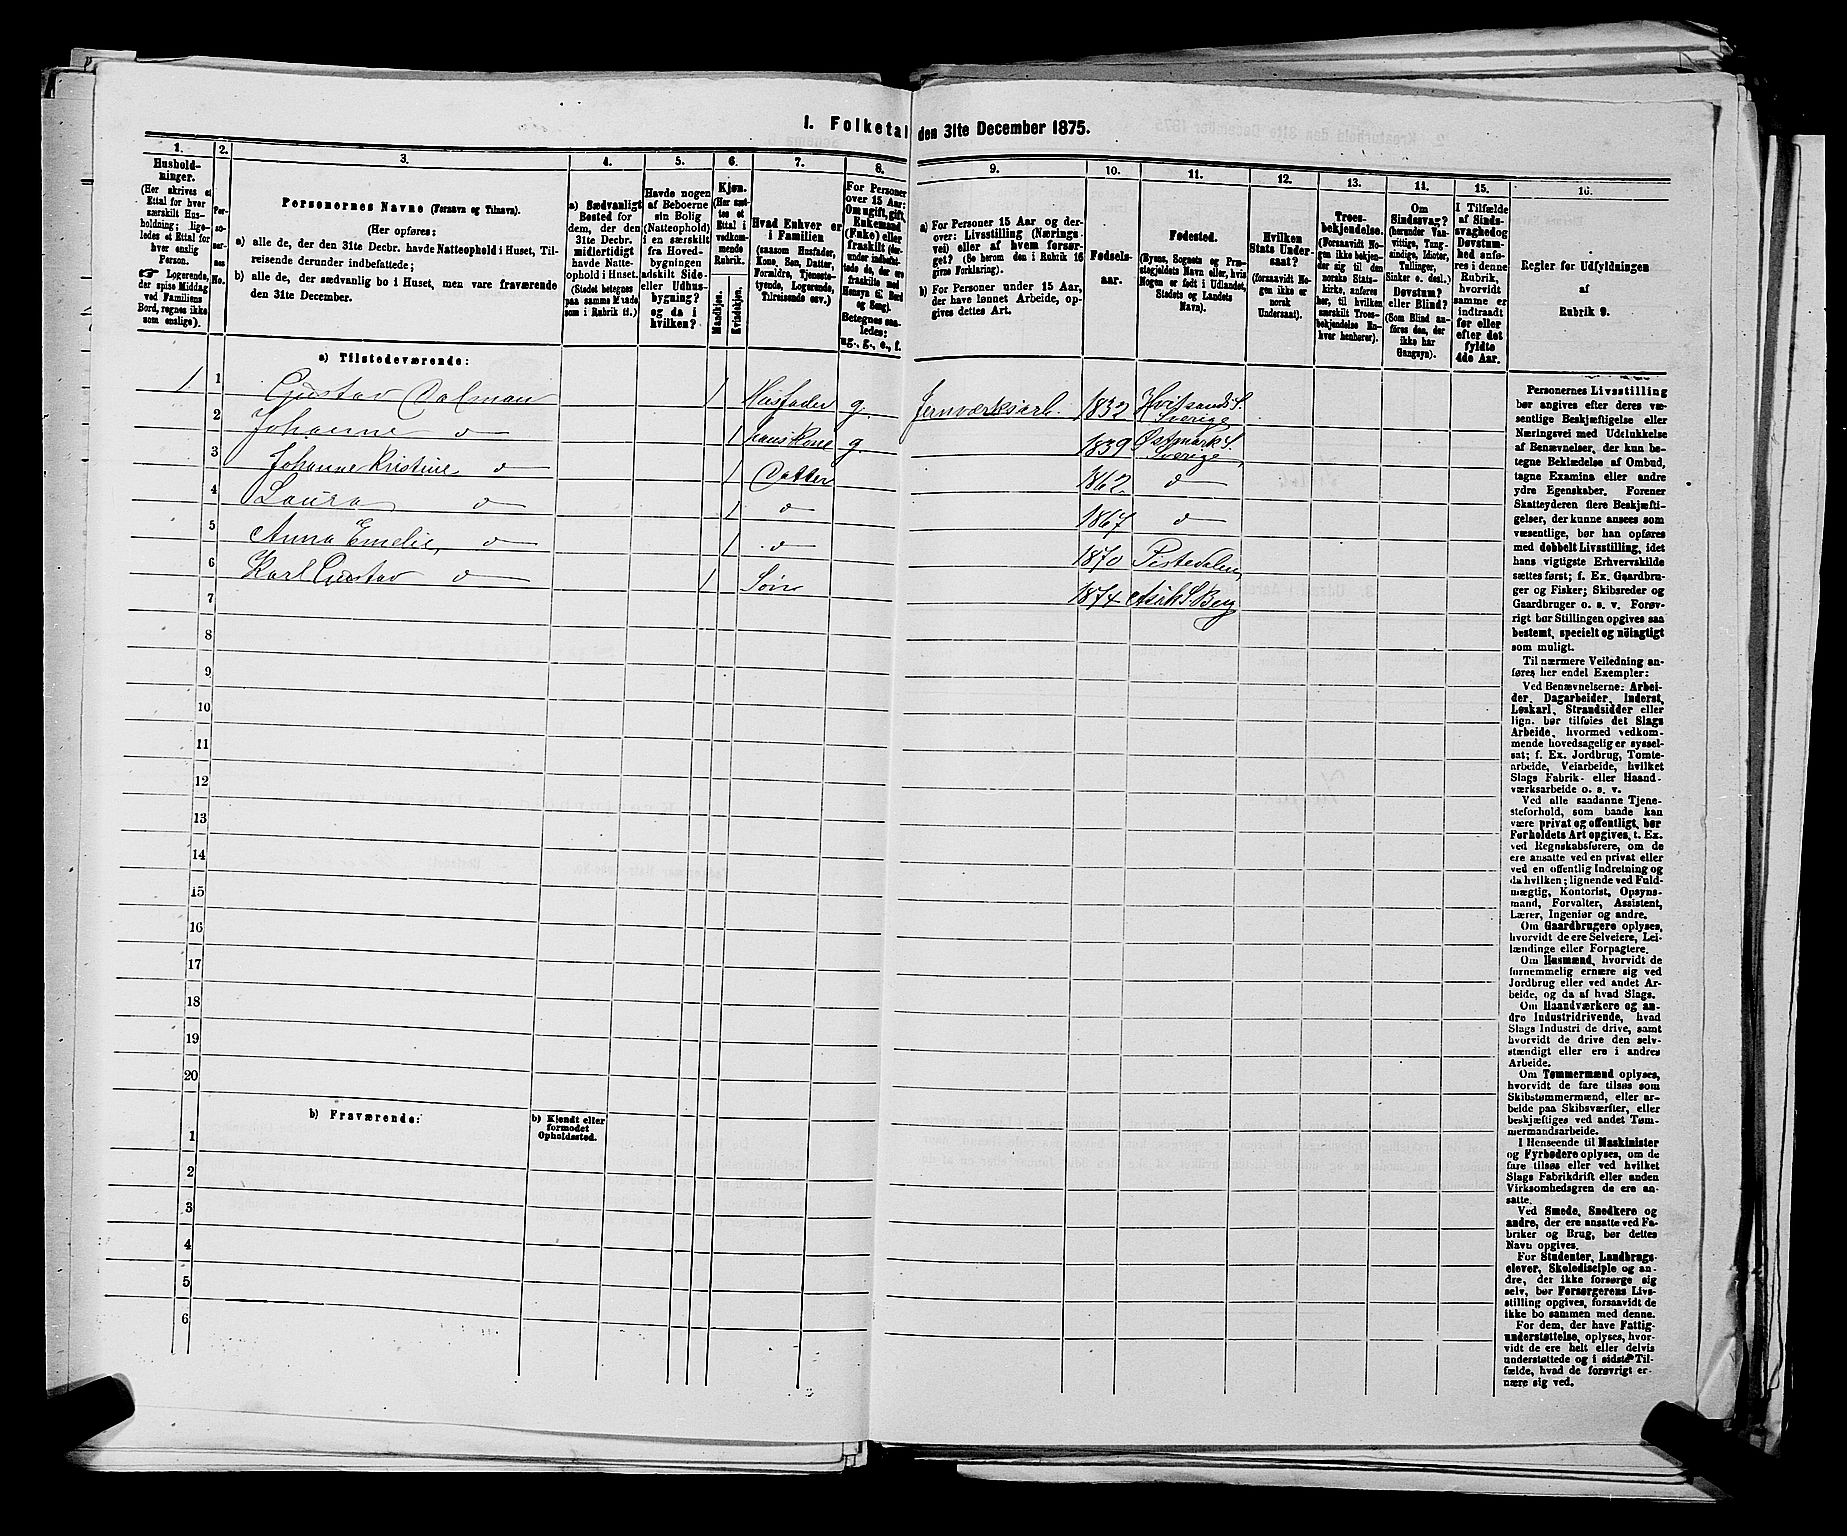 I. Folketal den 31te December 1875.
1. 2. 3. 4. 5. 6. 7. 8. 9. 10. 11. 12. 13. 14. 15. 16.
Hushold-
ninger.
(Her skrives et
Ettal for hver
særskilt Hus-
holdning; lige-
ledes et Ettal for
hver enslig
Person.
☞ Logerende,
der spise Middag
ved Familiens
Bord, regnes ikke
som enslige).
Per-
so-
ner-
nes
No.
Personernes Navne (Fornavn og Tilnavn).
(Her opføres:
a) alle de, der den 31te Decbr. havde Natteophold i Huset, Til-
reisende derunder indbefattede;
b) alle de, der sædvanlig bo i Huset, men vare fraværende
den 31te December.
a) Sædvanligt
Bosted for
dem, der den
31te Decbr.
midlertidigt
havde Natte-
ophold i Huset.
(Stedet betegnes
paa samme Maade
som i Rubrik 11.)
Havde nogen
af Beboerne
sin Bolig
(Natteophold)
i en særskilt
fra Hoved-
bygningen
adskilt Side-
eller Udhus-
bygning?
og da i
hvilken?
Kjøn.
(Her sæt-
tes et
Ettal i
vedkom-
mende
Rubrik.
Mandkjøn.
Kvindekjøn.
Hvad Enhver er
i Familien
(saasom Husfader,
Kone, Søn, Datter,
Forældre, Tjeneste-
tyende, Logerende,
Tilreisende osv.)
For Personer
over 15 Aar:
Om ugift, gift,
Enkemand
(Enke) eller
fraskilt (der-
under indbefat-
tede de, der ere
fraskilte med
Hensyn til Bord
og Seng).
Betegnes saa-
ledes:
ug., g., e., f.
a) For Personer 15 Aar og der-
over: Livsstilling (Nærings-
vei) eller af hvem forsør-
get? (Se herom den i Rubrik 16
givne Forklaring).
b) For Personer under 15 Aar,
der have lønnet Arbeide, op-
gives dettes Art.
Fødsels-
aar.
Fødested.
(Byens, Sognets og Præ-
stegjeldets Navn eller, hvis
Nogen er født i Udlandet,
Stedets og Landets
Navn).
Hvilken
Stats Under-
saat?
(forsaavidt No-
gen ikke er
norsk
Undersaat).
Troes-
bekjendelse.
(Forsaavidt No-
gen ikke bekjen-
der sig til den
norske Stats-
kirke, anføres
her, til hvilken
særskilt Troes-
bekjendelse En-
hver henhører).
Om
Sindssvag?
(herunder Van-
vittige, Tung-
sindige, Idioter,
Tullinger,
Sinker o. desl.)
Døvstum?
eller Blind?
(Som Blind an-
føres den, der
ikke har
Gangsyn).
I Tilfælde
af Sinds-
svaghed og
Døvstum-
hed anfø-
res i denne
Rubrik,
hvorvidt
samme er
indtraadt
før eller
efter det
fyldte
4de Aar.
Regler for Udfyldningen
af
Rubrik 9.
a) Tilstedeværende:
1 1 Gustav Dalman 1 Husfader g. Jernværksarb. 1832 Hvitsands S. Sverige
2 Johanne d 1 hans Kone g. 1839 Østmark S. Sverige
3 Johanne Kristine d 1 Datter 1862 d
4 Laura d 1 d 1867 d
5 Anna Emelie d 1 d 1870 Tistedalen
6 Karl Gustav d 1 Søn 1874 Asak S Berg
7
8
9
10
11
12
13
14
15
16
17
18
19
20
b) Fraværende:
b) Kjendt eller
formodet
Opholdssted.
1
2
3
4
5
6
Personernes Livsstilling
bør angives efter deres væ-
sentlige Beskjæftigelse eller
Næringsvei med Udelukkelse
af Benævnelser, der kun be-
tegne Beklædelse af Ombud,
tagne Examina eller andre
ydre Egenskaber. Forener
Skatteyderen flere Beskjæfti-
gelser, der kunne ansees som
væsentlige, bør han opføres
med dobbelt Livsstilling, idet
hans vigtigste Erhvervskilde
sættes først; f. Ex. Gaardbru-
ger og Fisker; Skibsreder og
Gaardbruger o. s. v. Forøv-
rigt bør Stillingen opgives saa
bestemt, specielt og nöiagtigt
som muligt.
Til nærmere Veiledning an-
føres her endel Exempler:
Ved Benævnelserne: Arbei-
der, Dagarbeider, Inderst,
Løskarl, Strandsidder eller
lign. bør tilføies det Slags
Arbeide, hvormed vedkom-
mende hovedsagelig er syssel-
sat; f. Ex. Jordbrug, Tomte-
arbeide, Veiarbeide, hvilket
Slags Fabrik- eller Haand-
værksarbeide o. s. v.
Ved alle saadanne Tjene-
steforhold, som baade kan
være privat og offentligt, bør
Forholdets Art opgives, t. Ex.
ved Regnskabsførere, om de
ere ansatte ved en privat eller
ved en offentlig Indretning og
da hvilken; lignende ved Fuld-
mægtig, Kontorist, Opsyns-
mand, Forvalter, Assistent,
Lærer, Ingeniør og andre.
Om Gaardbrugere oplyses,
hvorvidt de ere Selveiere, Lei-
lændinge eller Forpagtere.
Om Husmænd, hvorvidt de
fornemmelig ernære sig ved
Jordbrug eller ved andet Ar-
beide, og da af hvad Slags.
Om Haandværkere og an-
dre Industridrivende, hvad
Slags Industri de drive, samt
hvorvidt de drive den selv-
stændigt eller ere i andres
Arbeide.
Om Tømmermænd oplyses,
hvorvidt de fare tilsøs som
Skibstømmermænd, eller ar-
beide paa Skibsværfter, eller
beskjæftiges ved andet Tøm-
mermandsarbeide.
I Henseende til Maskinister
og Fyrbødere oplyses, om de
fare tilsøs eller ved hvilket
Slags Fabrikdrift eller anden
Virksomhedsgren de ere an-
satte.
Ved Smede, Snedkere og
andre, der ere ansatte ved Fa-
briker og Brug, bør dettes
Navn opgives.
For Studenter, Landbrugs-
elever, Skoledisciple og an-
dre, der ikke forsørge sig
selv, bør Forsørgerens Livs-
stilling opgives, forsaavidt de
ikke bo sammen med denne.
For dem, der have Fattig-
understøttelse, oplyses, hvor-
vidt de ere helt eller delvis
understøttede og i sidste Til-
fælde, hvad de forøvrigt er-
nære sig ved.